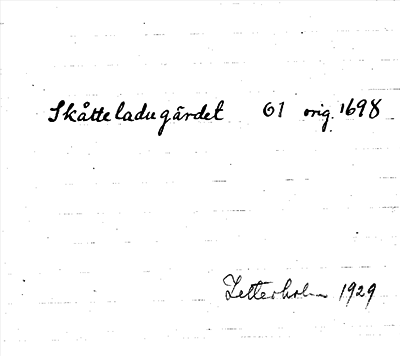 Skåtteladugärdet G1 orig. 1698
Zetterholm 1929